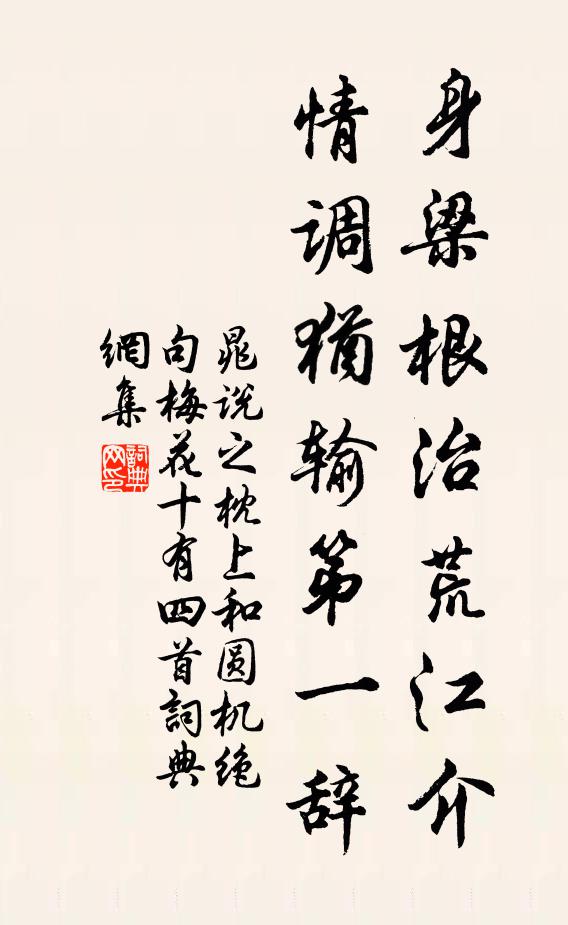 身梁根治荒江介
情调犹输第一辞
晁说之枕上和圆机绝
句梅花十有四首詞典
網集
詞典
网印